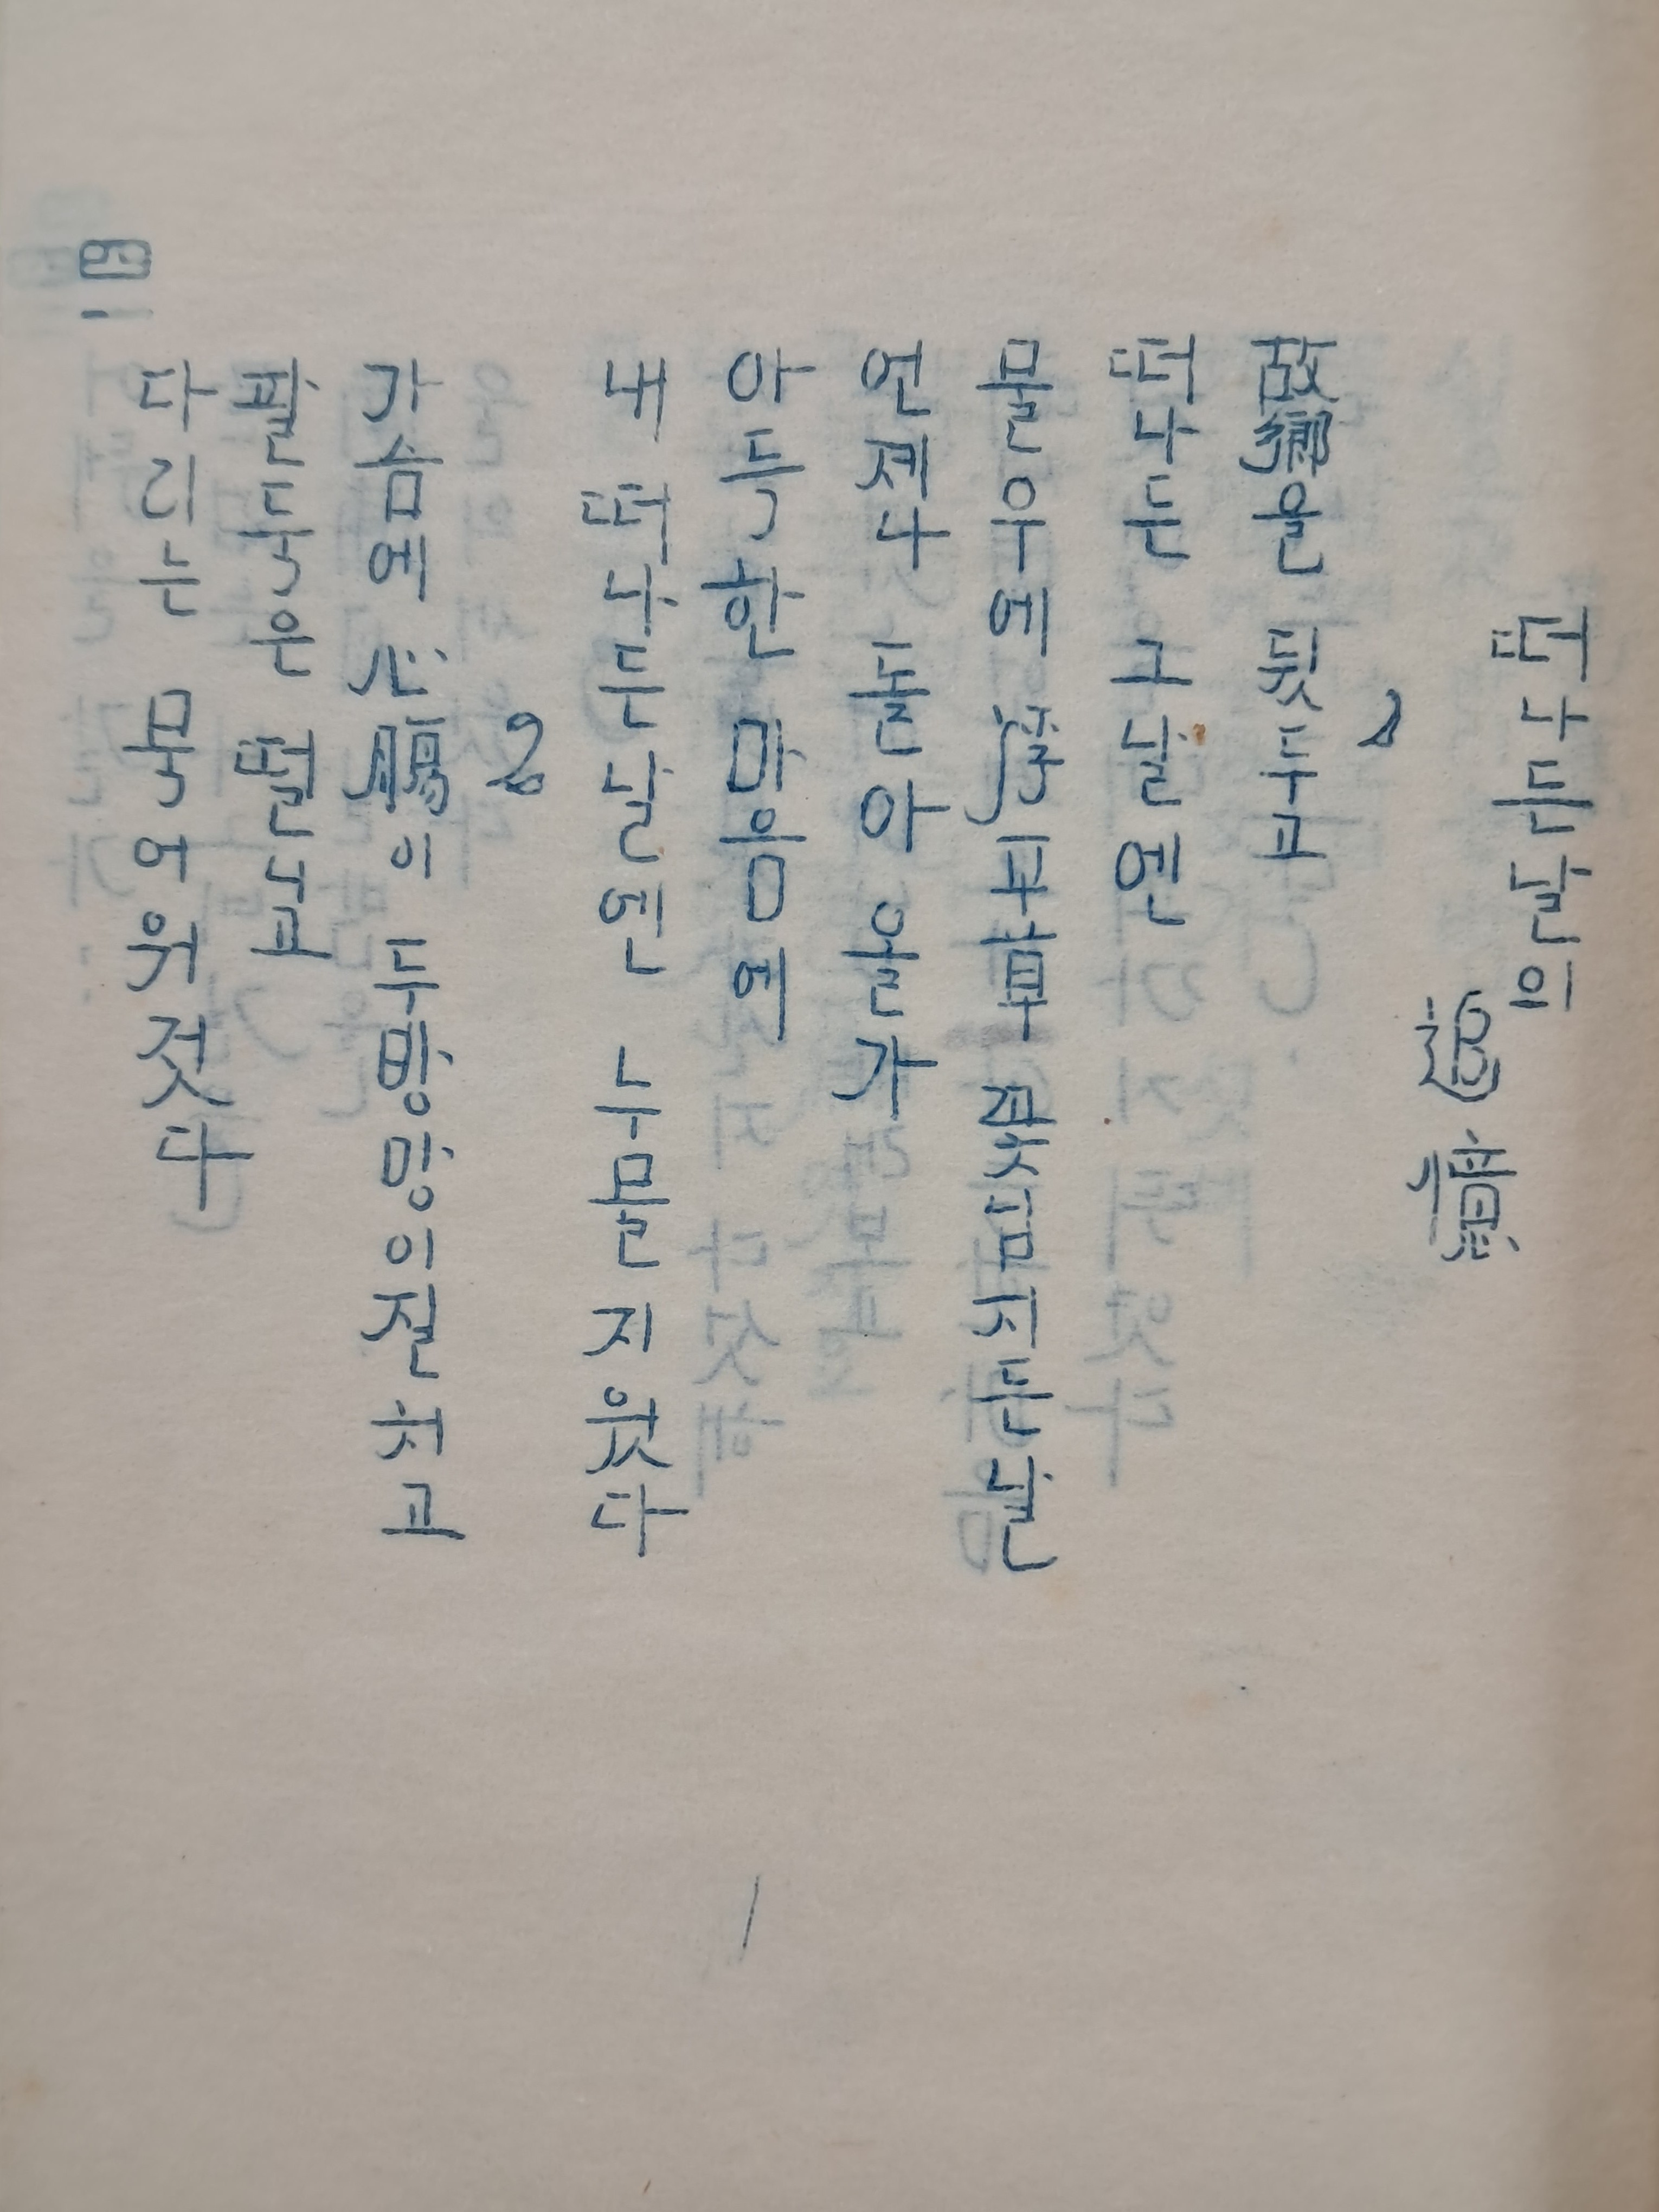 떠나든날의
追憶
1
故鄕을 뒷두고
떠나든 그날 엔
물우에 浮平草 갓흔지든날
언제나 돌아 올가
아득한 마음에
내 떠나든날엔 누물지웟다
2
가슴에 心臟이 두방망이질 치고
팔둑은 떨고
다리는 묵어워젓다